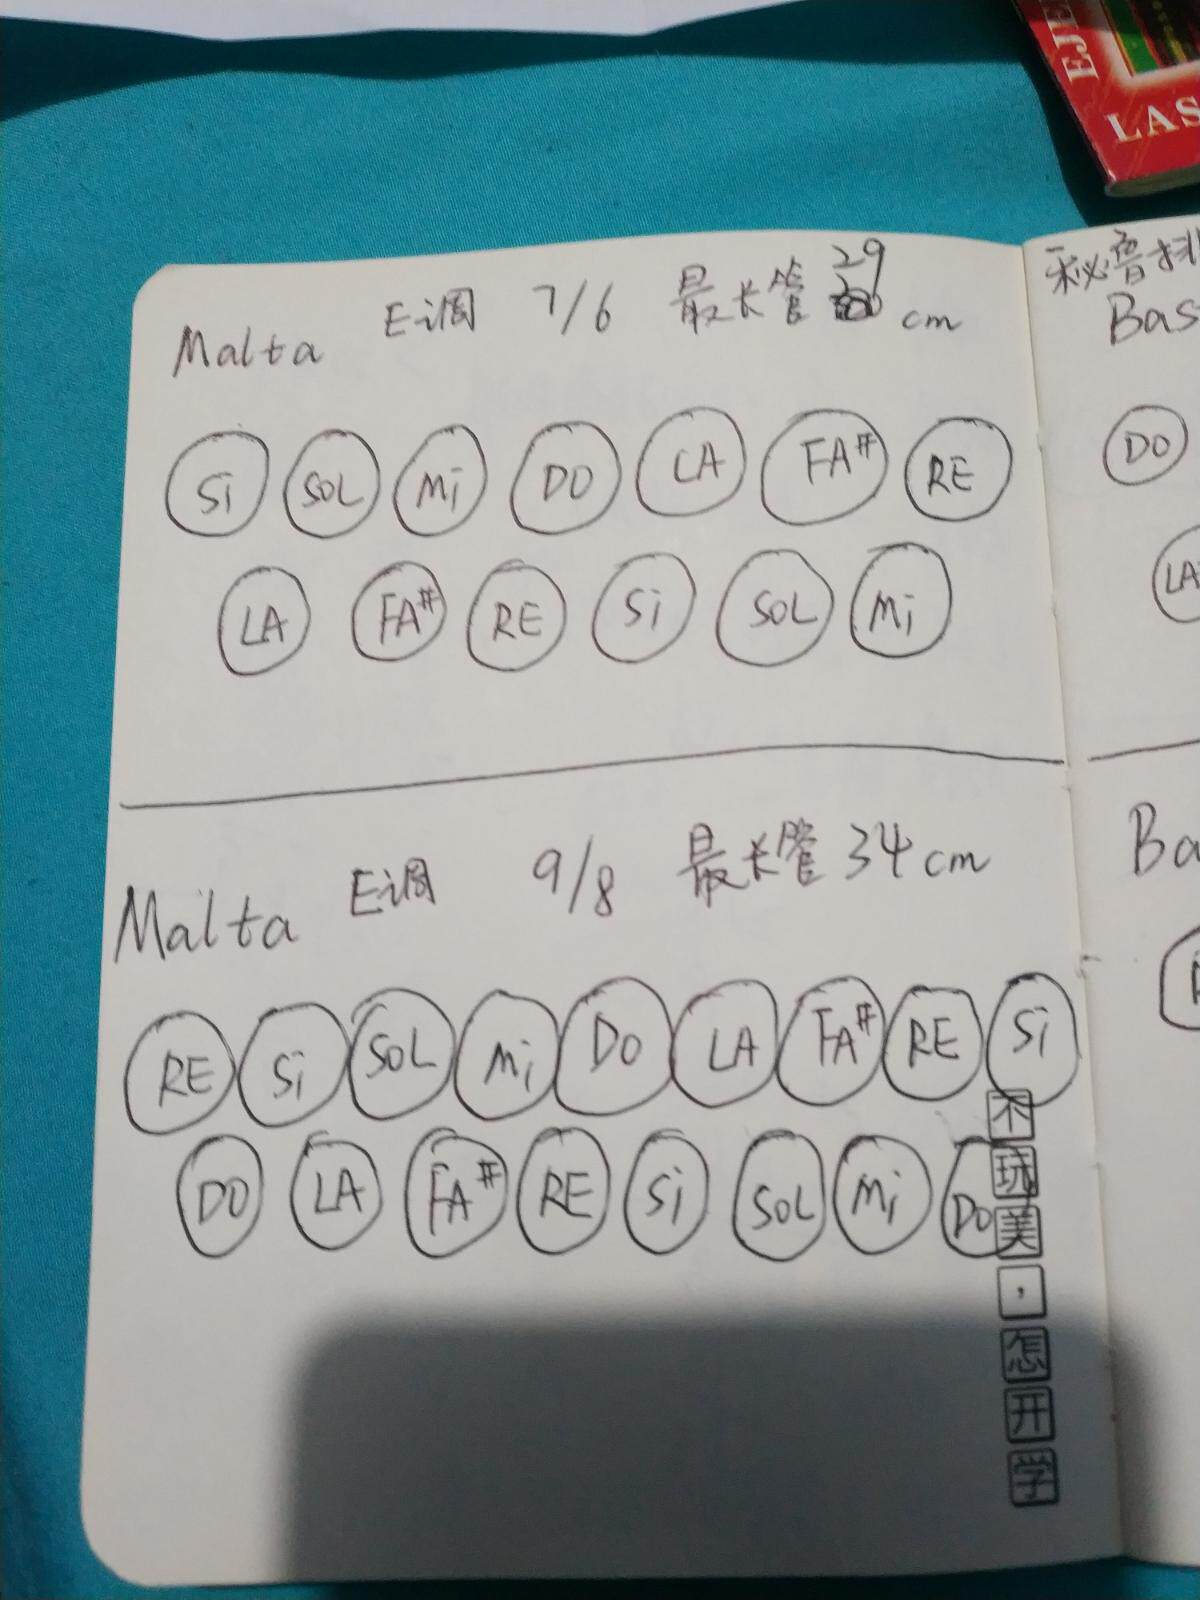 EJE
LAS
Malta E调 7/6 最长管 29 cm
Si SOL Mi DO LA FA# RE
LA FA# RE Si SOL Mi
Malta E调 9/8 最长管 34 cm
RE Si SOL Mi DO LA FA# RE Si
DO LA FA# RE Si SOL Mi DO
不玩美，怎开学
秘鲁排
Bas
DO
LA
Ba